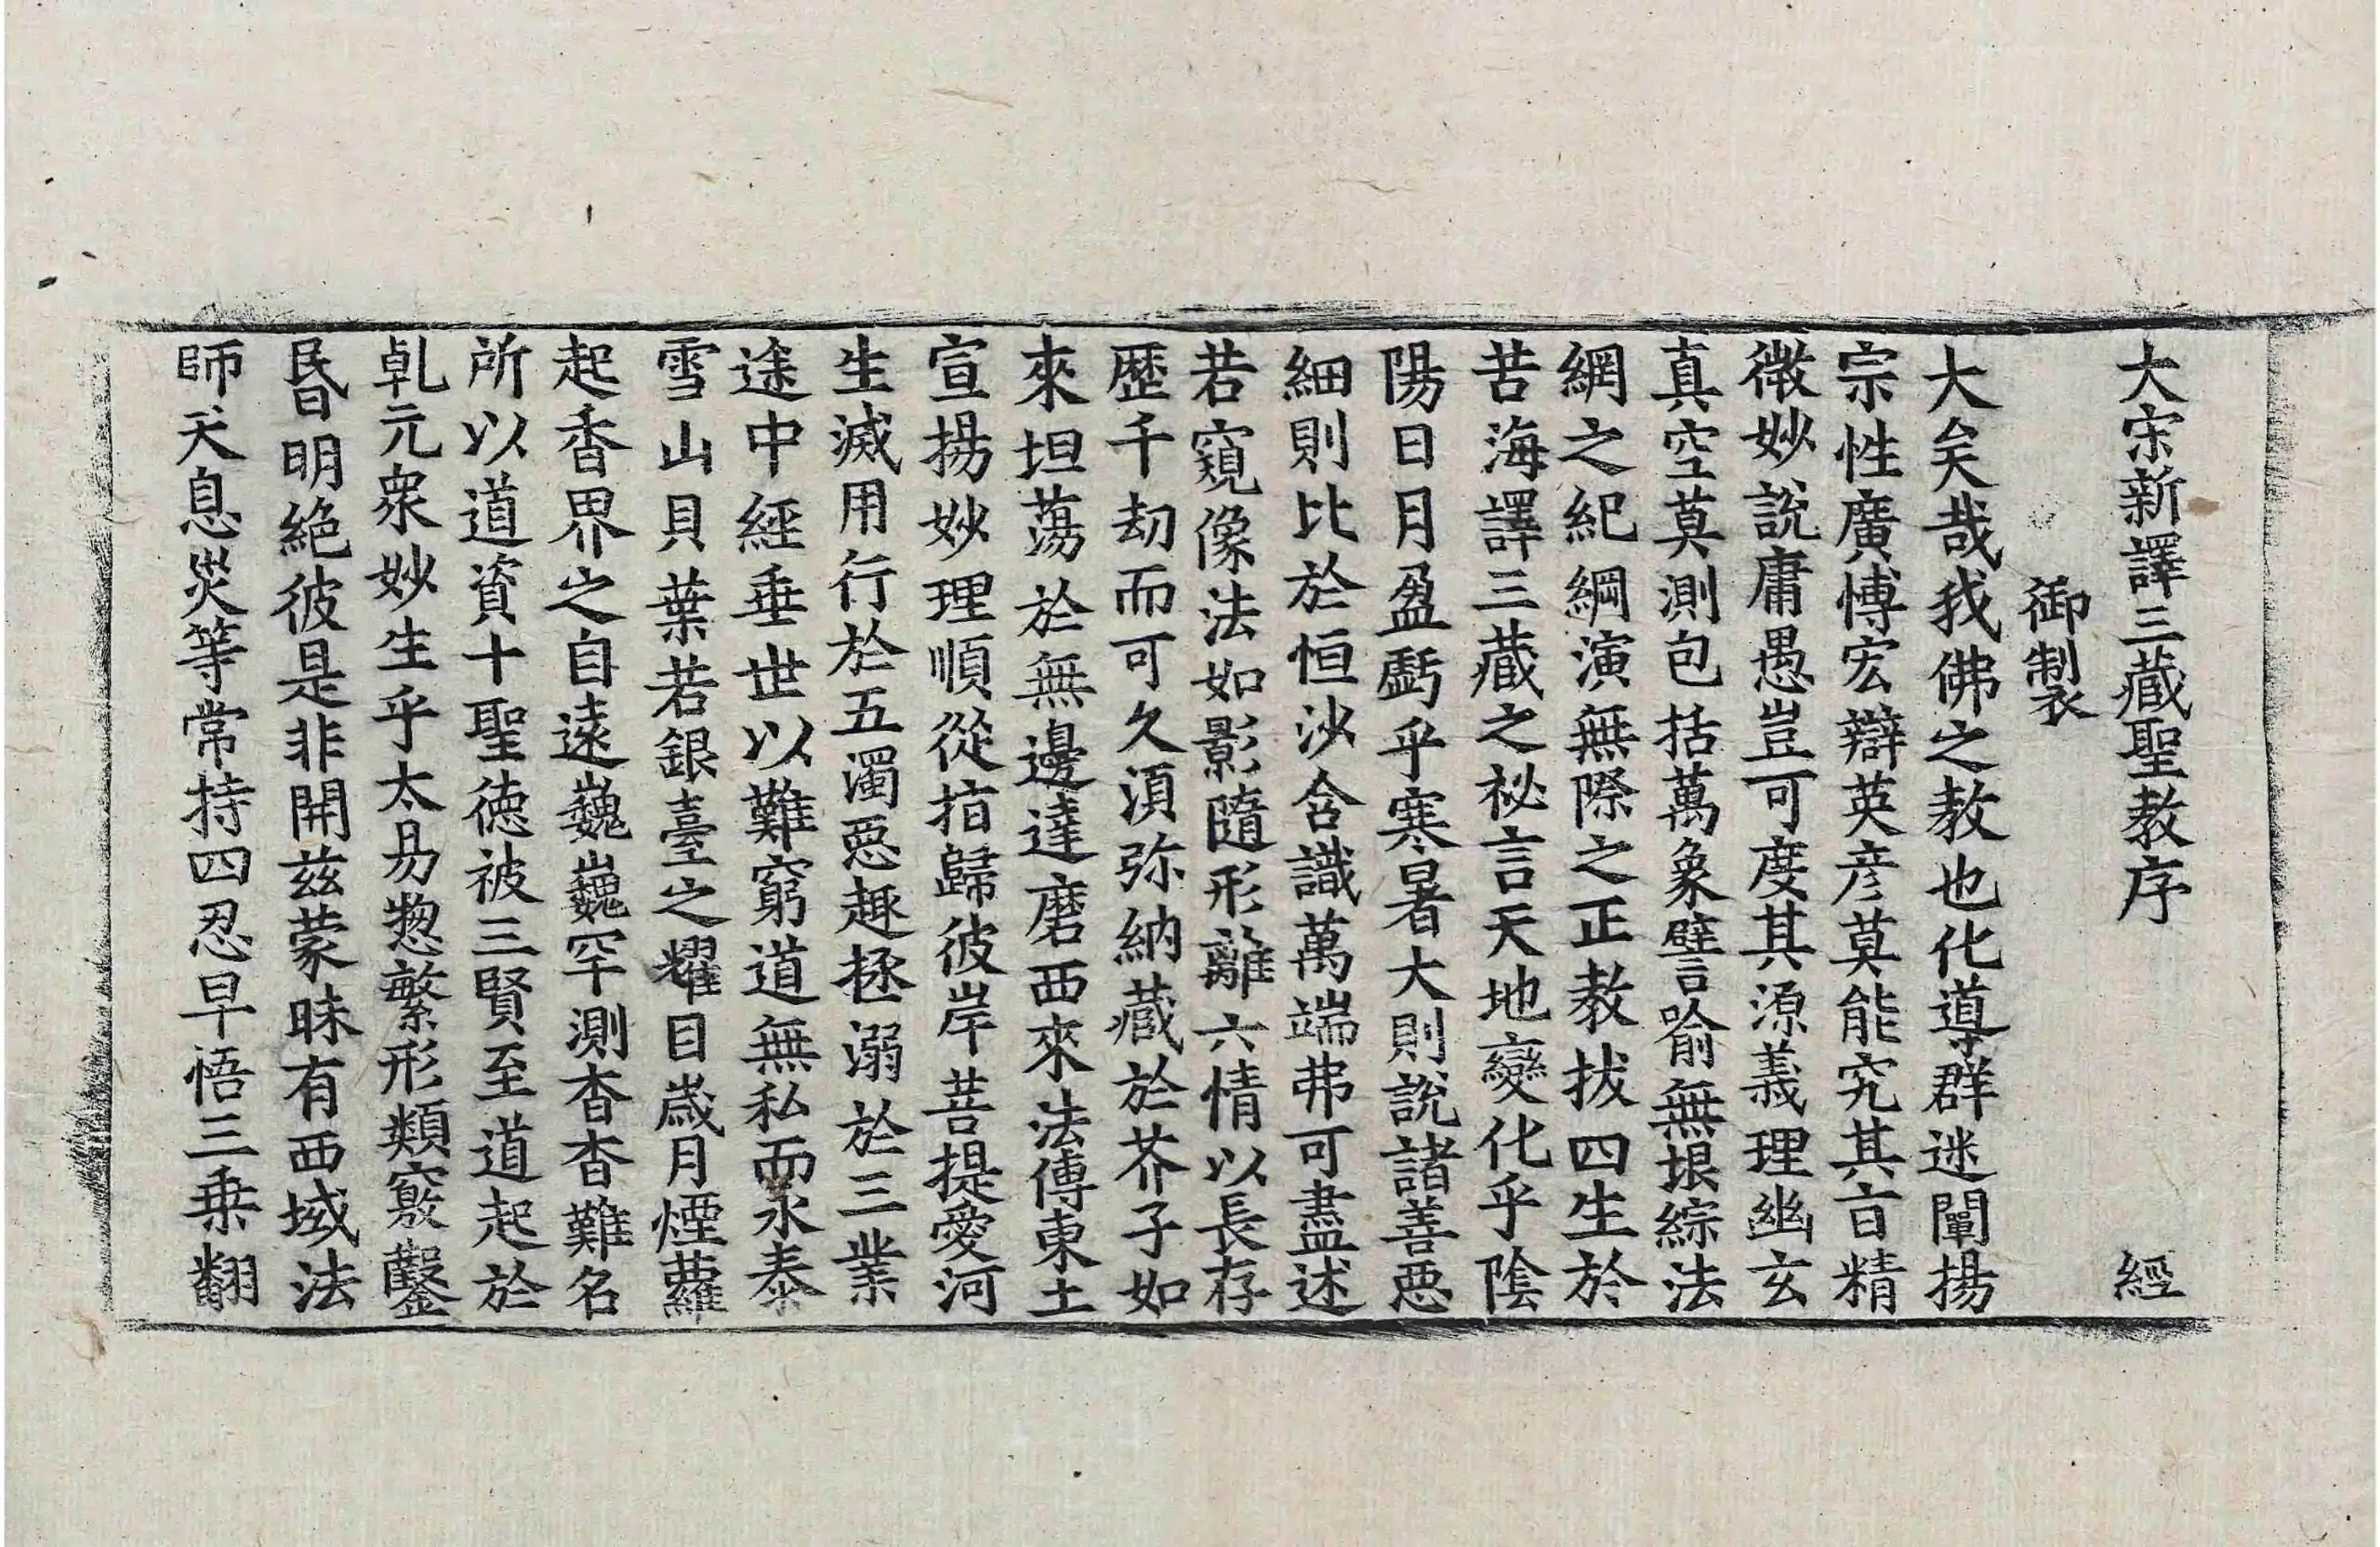 大宋新譯三藏聖教序 經
御製
大矣哉我佛之教也化導群迷闡揚
宗性廣博宏辯英彦莫能究其㫖精
微妙說庸愚豈可度其源義理幽玄
真空莫測包括萬象譬喻無垠綜法
網之紀綱演無際之正教拔四生於
苦海譯三藏之祕言天地變化乎陰
陽日月盈虧乎寒暑大則說諸善惡
細則比於恒沙含識萬端弗可盡述
若窺像法如影隨形離六情以長存
歷千劫而可久湏弥納藏於芥子如
來坦蕩於無邊達磨西來法傳東土
宣揚妙理順從指歸彼岸菩提愛河
生滅用行於五濁惡趣拯溺於三業
途中經垂世以難窮道無私而永泰
雪山貝葉若銀臺之耀目歲月煙蘿
起香界之自遠巍巍罕測杳杳難名
所以道資十聖德被三賢至道起於
乹元衆妙生乎太易惣繁形類竅鑿
昬明絶彼是非開兹蒙昧有西域法
師天息災等常持四忍早悟三乗翻